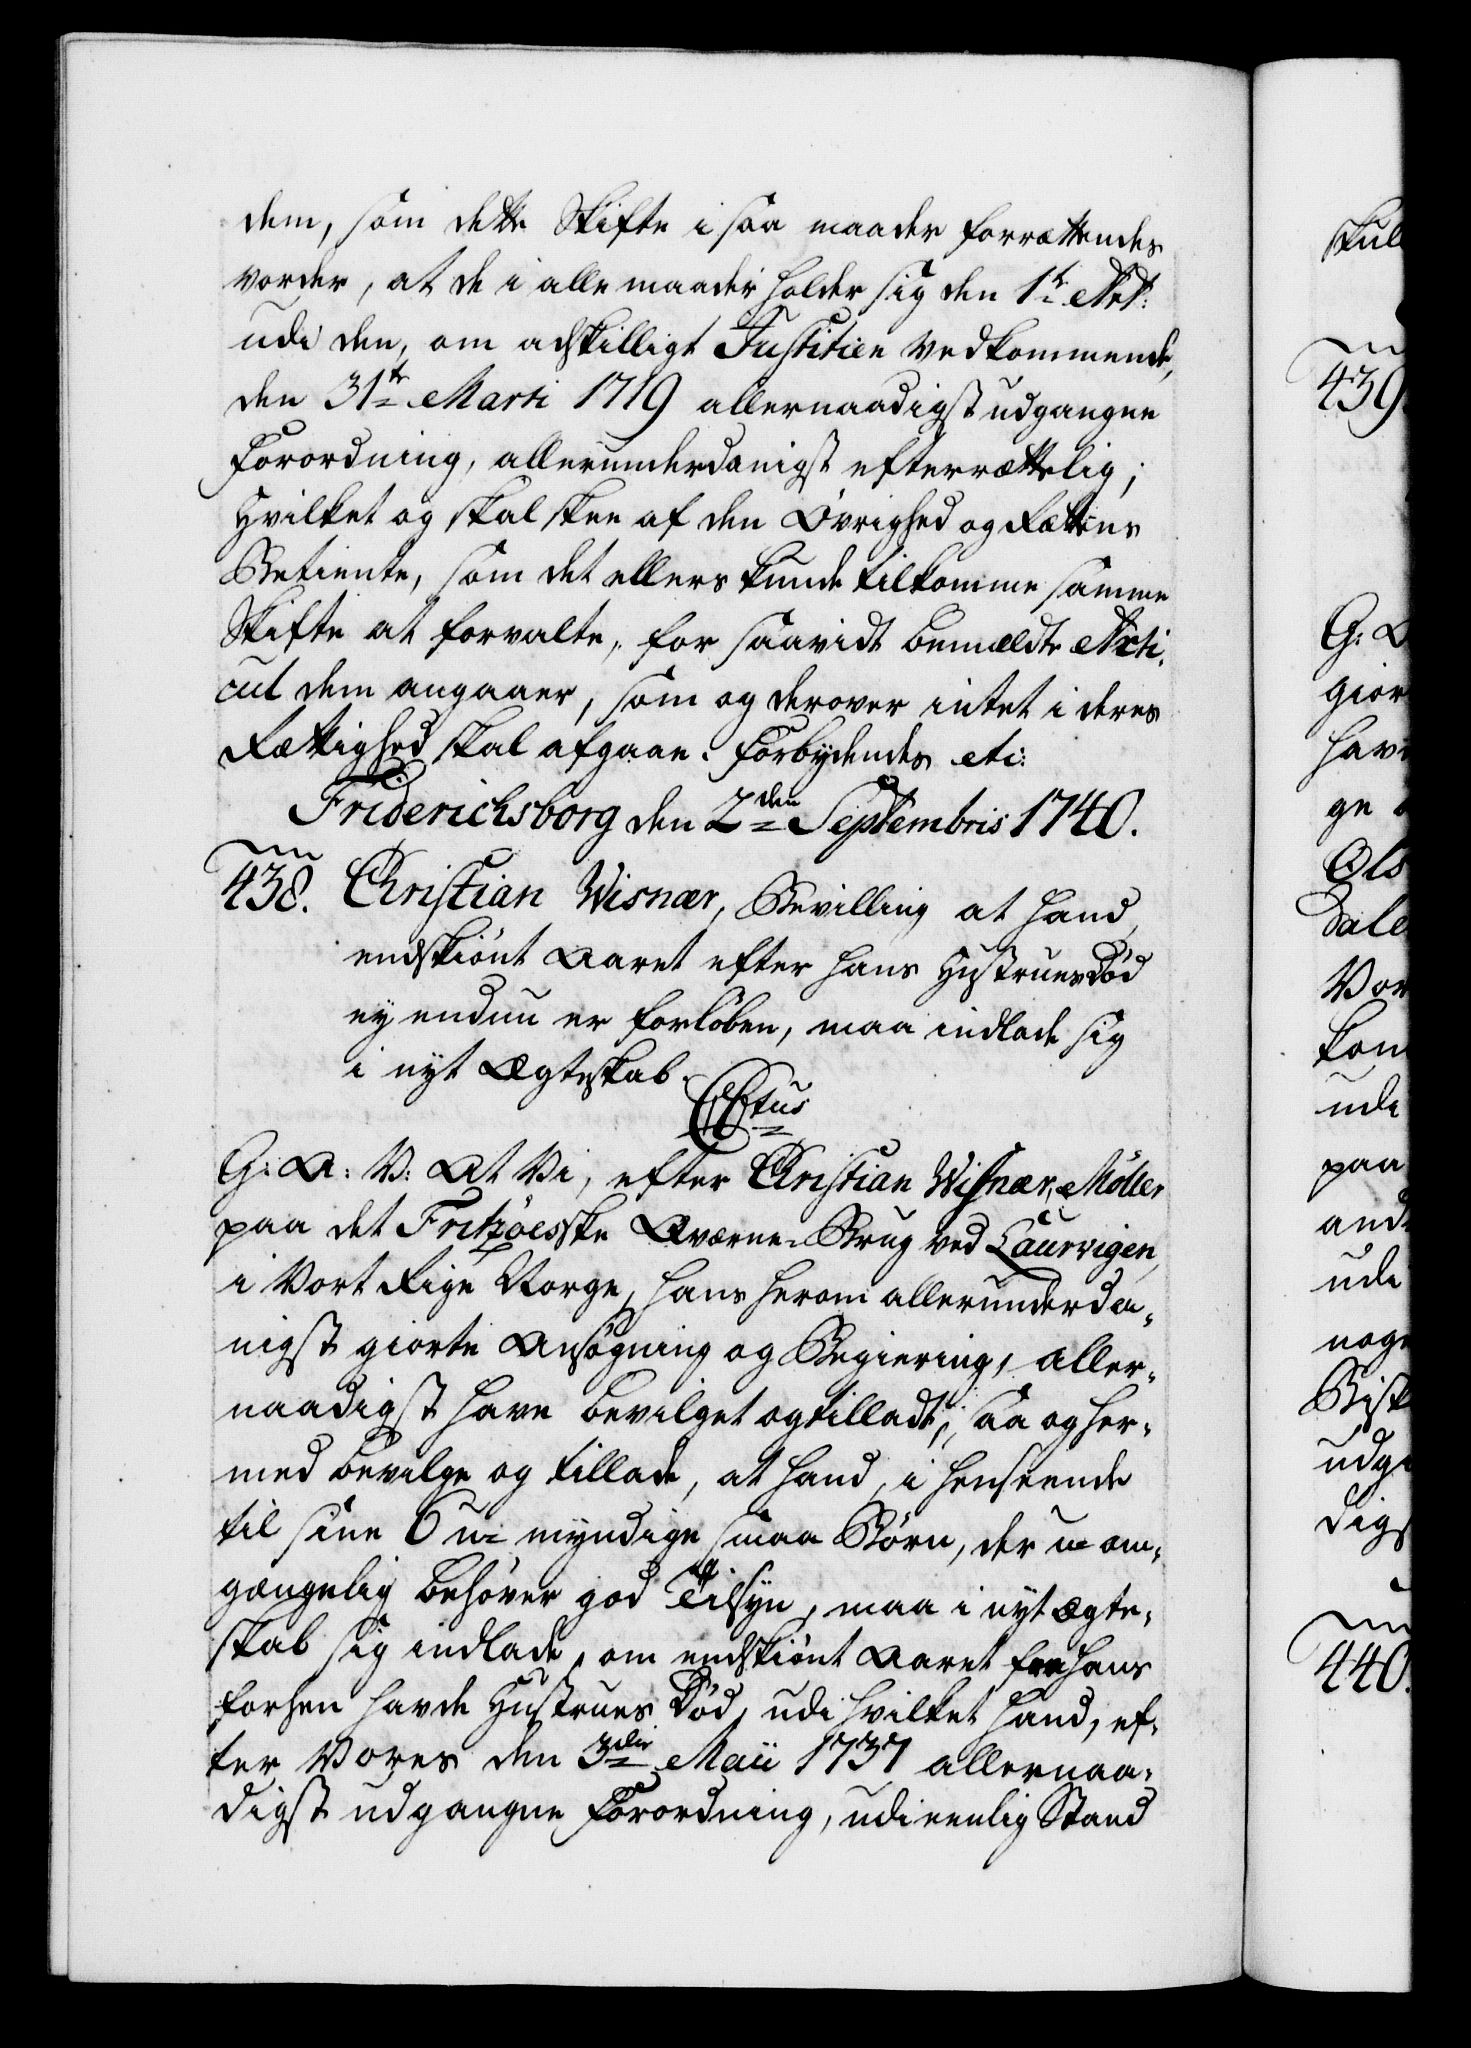 dem, som dette Skifte i saa maader forrættendes
vorder, at de i alle maader holder sig den 1te Art:
udi den, om adskilligt Justitien vedkommende,
den 31te Marti 1719 allernaadigst udgangne
Forordning, allerunderdanigst efterrættelig;
Hvilket og skal skee af den Øvrighed og Rættens
Betiente, som det ellers kunde tilkomme samme
Skifte at forvalte, for saavidt bemældte Arti-
cul dem angaaer, som og derover intet i deres
Rættighed skal afgaae. Forbydendes etc:
Friderichsborg den 2den Septembris 1740.
438. Christian Wisnær, Bevilling at hand,
endskiönt Aaret efter hans Hustrues Död
ey enduu er forlöben, maa indlade sig
i nyt Ægteskab.
CCtus
G: A: V: At Vi, efter Christian Wisnær, Möller
paa det Fritzöeske Qværne-Brug ved Laurvigen,
i Vort Rige Norge, hans herom allerunderda-
nigst giorte Ansögning og Begiering, aller-
naadigst have bevilget og tilladt, saa og her-
med bevilge og tillade, at hand, i henseende
til sine 6 u-myndige smaa Børn, der u-om-
gængelig behöver god Tilsyn, maa i nyt Ægte-
skab sig indlade, om endskiönt Aaret fra hans
forhen havde Hustrues Död, udi hvilket hand, ef-
ter Vores den 3die Maii 1737 allernaa-
digst udgangne Forordning, udi eenlig Stand
skul
439.
G: A
gior
hav
ge
Ols
Dale
Vor
kom
udi
paa
and
udi
noge
Bisk
udg
digs
440.